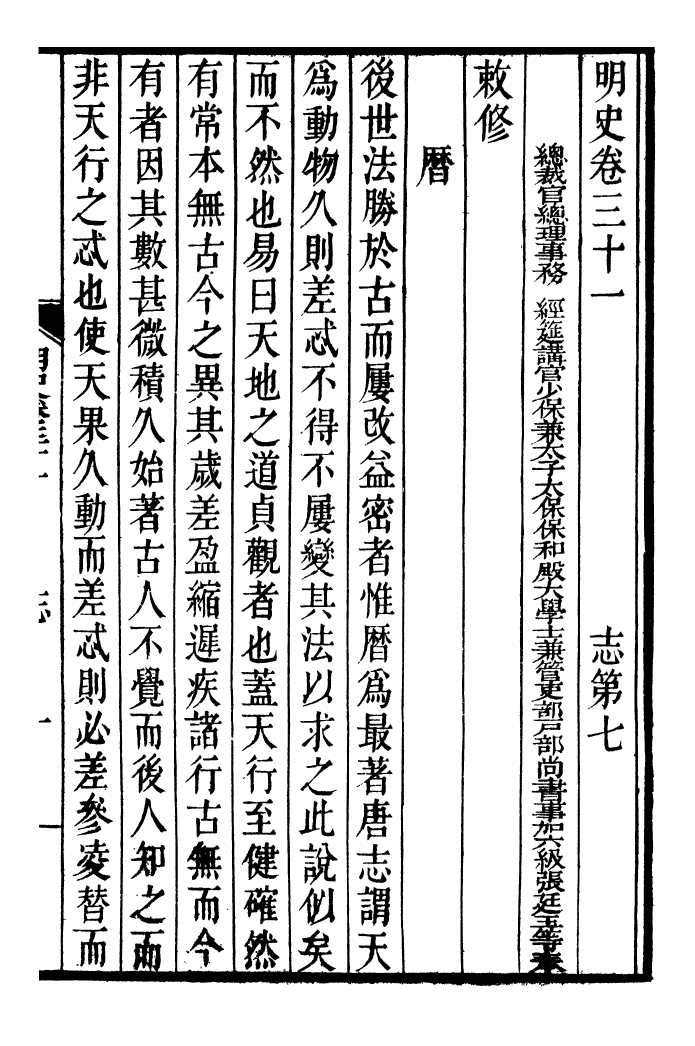 明史卷三十一 志第七
總裁官總理事務 經筵講官少保兼太子太保保和殿大學士兼管吏部戶部尚書事加六級張廷玉等奉
敕修
曆
後世法勝於古而屢改益密者惟曆爲最著唐志謂天
爲動物久則差忒不得不屢變其法以求之此說似矣
而不然也易曰天地之道貞觀者也蓋天行至健確然
有常本無古今之異其歲差盈縮遲疾諸行古無而今
有者因其數甚微積久始著古人不覺而後人知之而
非天行之忒也使天果久動而差忒則必差參凌替而
明史卷三十一 志 一